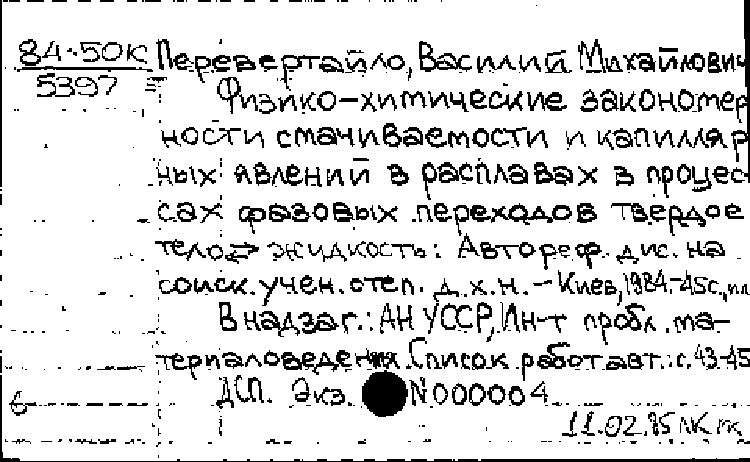 84-50К Перевертайло, Василий Михайлович
5397
Физико-химические закономер
ности смачиваемости и капилляр
ных явлений в расплавах в процес
сах фазовых переходов твердое
тело ⇄ жидкость: Автореф. дис. на
соиск. учен. степ. д.х.н. - Киев, 1984.-45с.,
В надзаг.: АН УССР, Ин-т пробл. ма-
териаловедения. Список работ авт.: с.43-45
ДСП. Экз. N000004
11.02.85